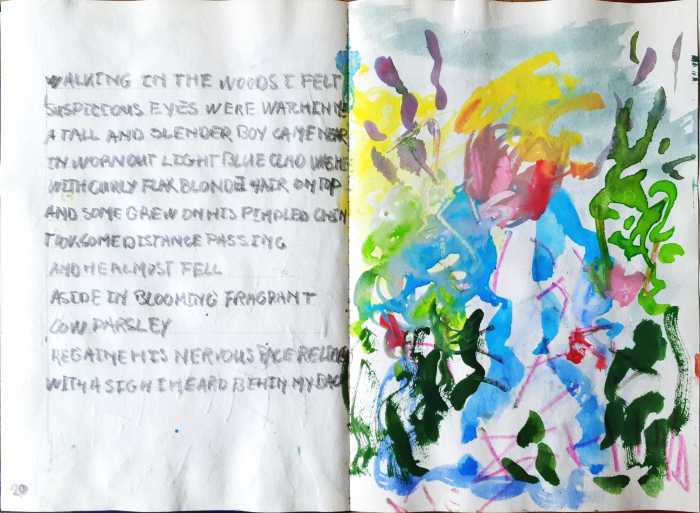 WALKING IN THE WOODS I FELT
SUSPICIOUS EYES WERE WATCHIN ME
A TALL AND SLENDER BOY CAME NEAR
IN WORN OUT LIGHT BLUE CLAD
WITH CURLY FLAX BLOND HAIR ON TOP
AND SOME GREW ON HIS PIMPLED CHIN
TOOK SOME DISTANCE PASSING
AND HE ALMOST FELL
ASIDE IN BLOOMING FRAGRANT
COW PARSLEY
REGAINE HIS NERVOUS PACE
WITH A SIGH I HEARD BEHIN MY BACK
20